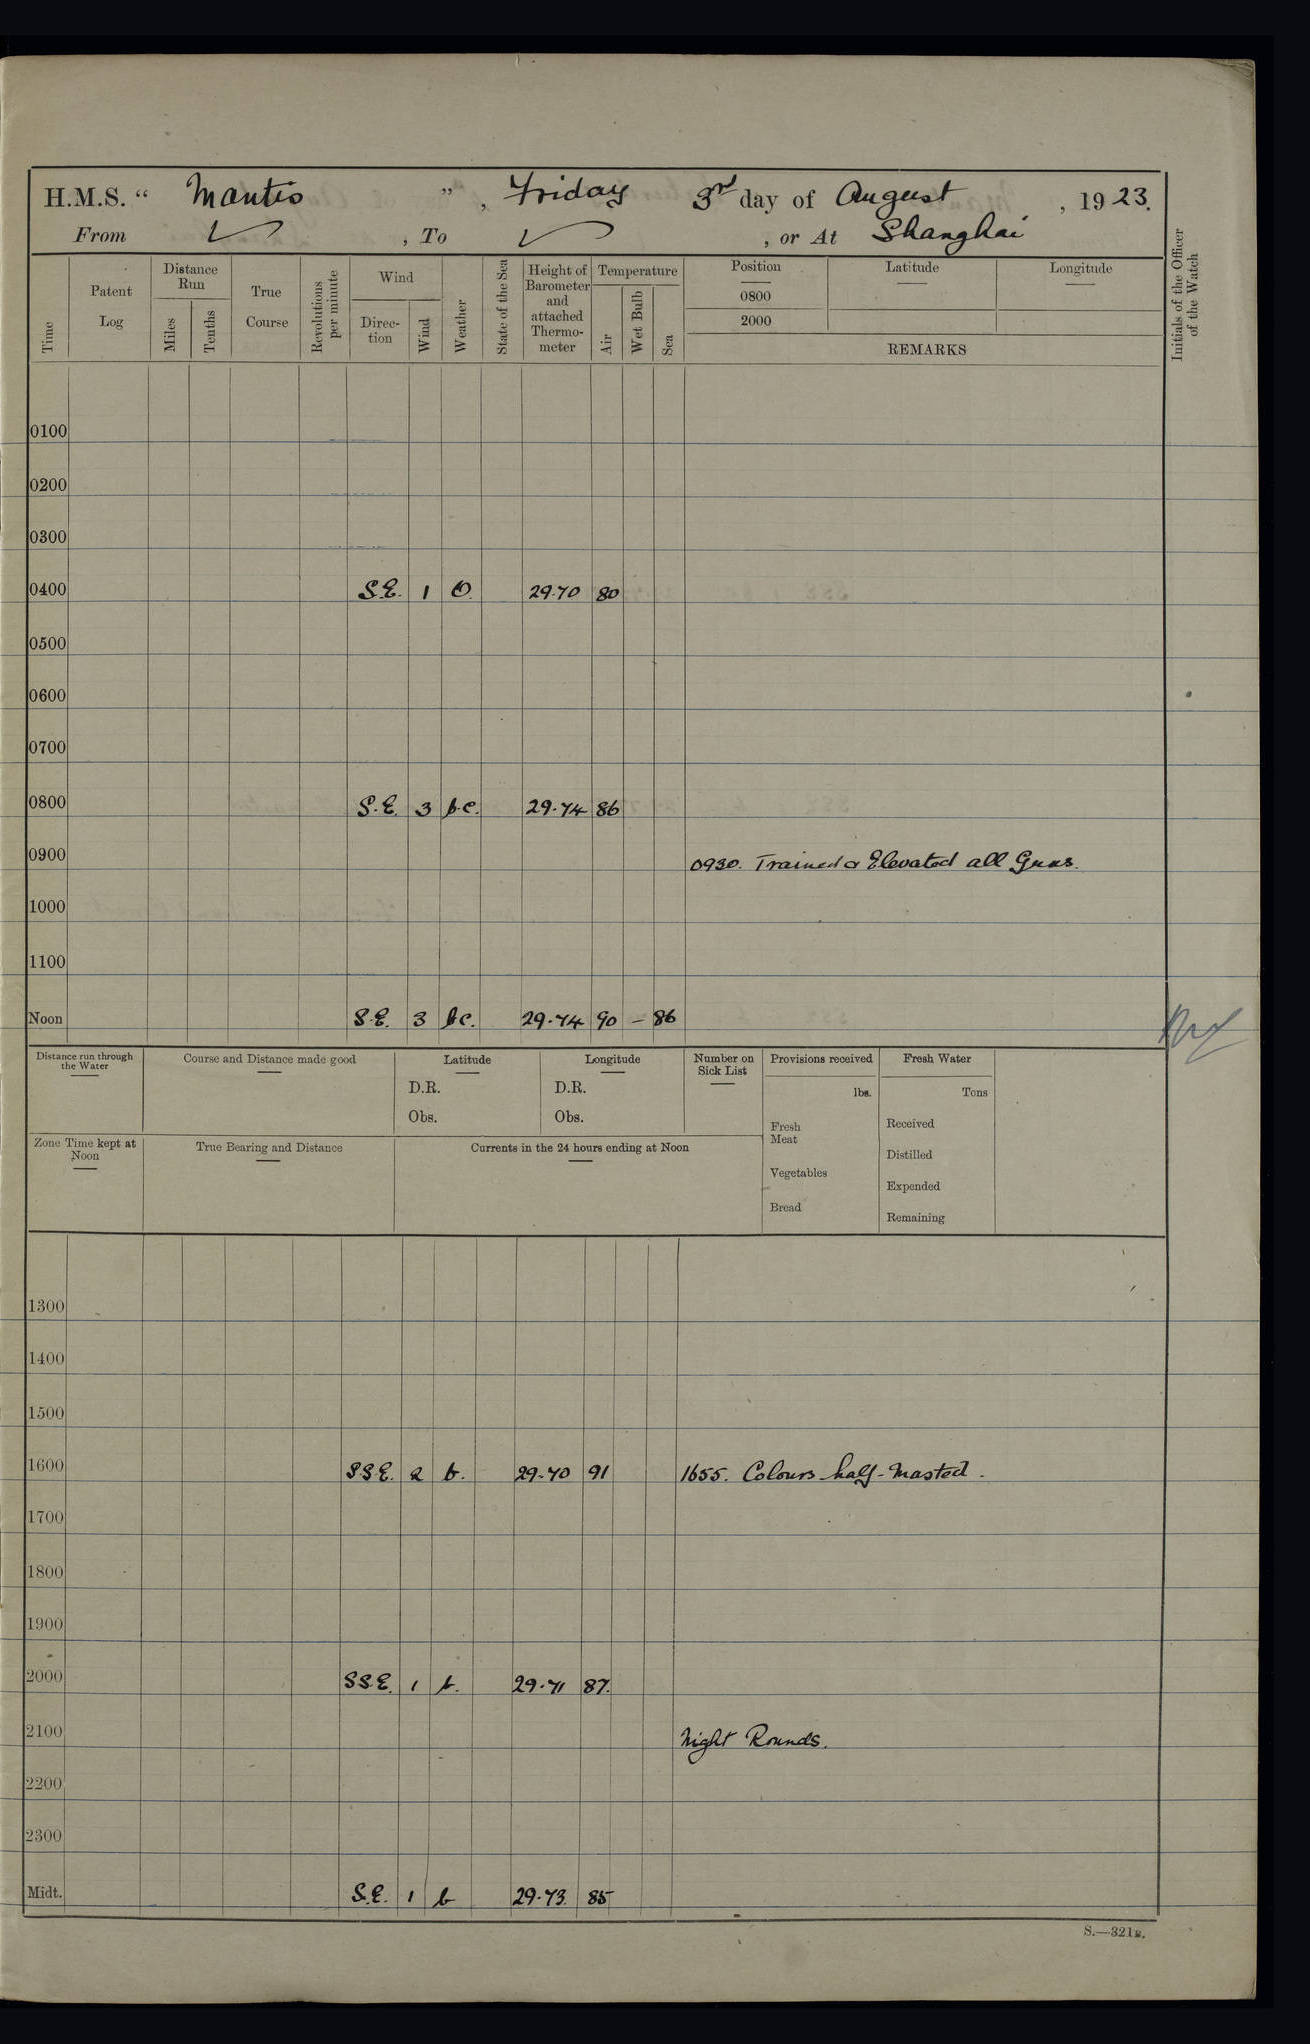 H.M.S. “ Mantis ”, Friday 3rd day of August, 1923.
From , To , or At Shanghai
Time
Patent Log
Distance Run
Miles
Tenths
True Course
Revolutions per minute
Wind
Direc-tion
Wind
Weather
State of the Sea
Height of Barometer and attached Thermo-meter
Temperature
Air
Wet Bulb
Sea
Position
0800
2000
Latitude
Longitude
REMARKS
Initials of the Officer of the Watch
0100
0200
0300
0400 S.E. 1 O. 29.70 80
0500
0600
0700
0800 S.E. 3 b.c. 29.74 86
0900 0930. Trained & Elevated all Guns.
1000
1100
Noon S.E. 3 bc. 29.74 90 – 86
Distance run through the Water
Course and Distance made good
Latitude
D.R.
Obs.
Longitude
D.R.
Obs.
Number on Sick List
Provisions received
lbs.
Fresh Meat
Vegetables
Bread
Fresh Water
Tons
Received
Distilled
Expended
Remaining
Zone Time kept at Noon
True Bearing and Distance
Currents in the 24 hours ending at Noon
1300
1400
1500
1600 S.S.E. 2 b. 29.70 91 1655. Colours half-masted.
1700
1800
1900
2000 S.S.E. 1 b. 29.71 87.
2100 Night Rounds.
2200
2300
Midt. S.E. 1 b 29.73. 85
S.—321B.